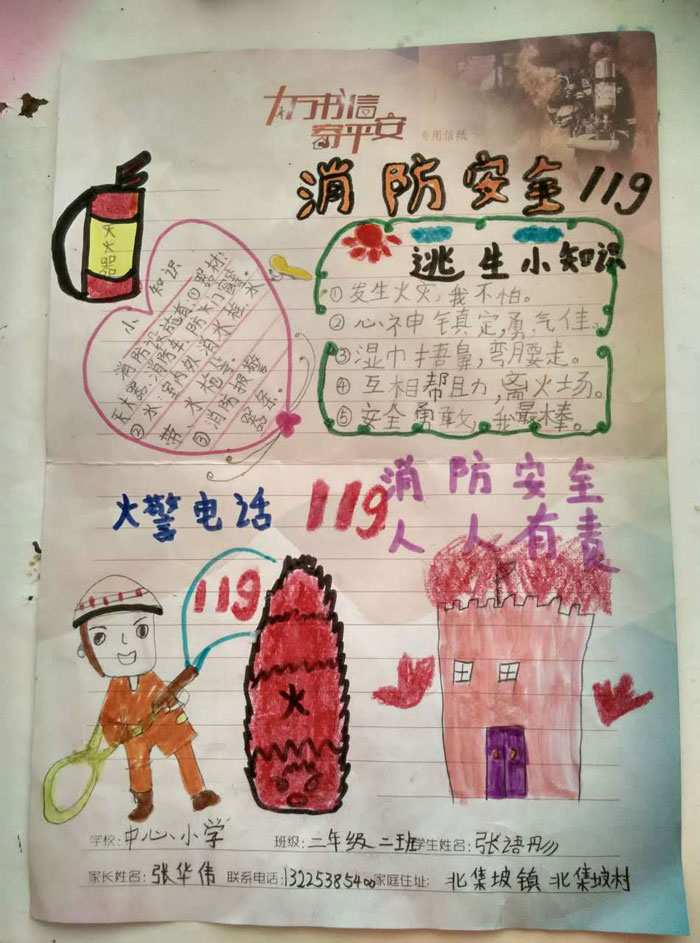 万书信
寄平安
专用信纸
消防安全119
灭火器
小知识
消防设施有:①器材:
灭火器,消防车,防火门窗等。
②水:室内外消火栓,水
带、水枪等。
③消防报警
器等。
逃生小知识
①发生火灾,我不怕。
②心神镇定,勇气佳。
③湿巾捂鼻,弯腰走。
④互相帮助,火场。
⑤安全勇敢,我最棒。
火警电话 119
消防安全
人人有责
119
火
学校:中心小学 班级:二年级二班 学生姓名:张语彤
家长姓名:张华伟 联系电话:13225385400 家庭住址:北集坡镇北集坡村